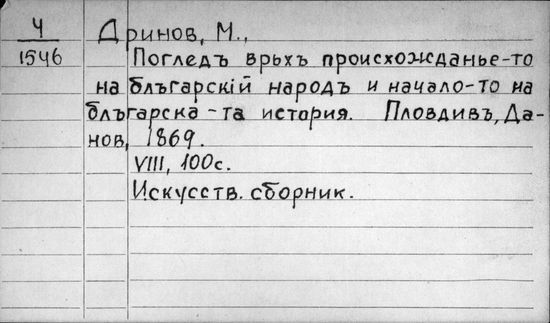 4
1546
Дринов, М.,
Погледъ врьхъ происхожданье-то
на блъгарскій народъ и начало-то на
блъгарска-та история. Пловдивъ, Да-
нов, 1869.
VIII, 100с.
Искусств. сборник.